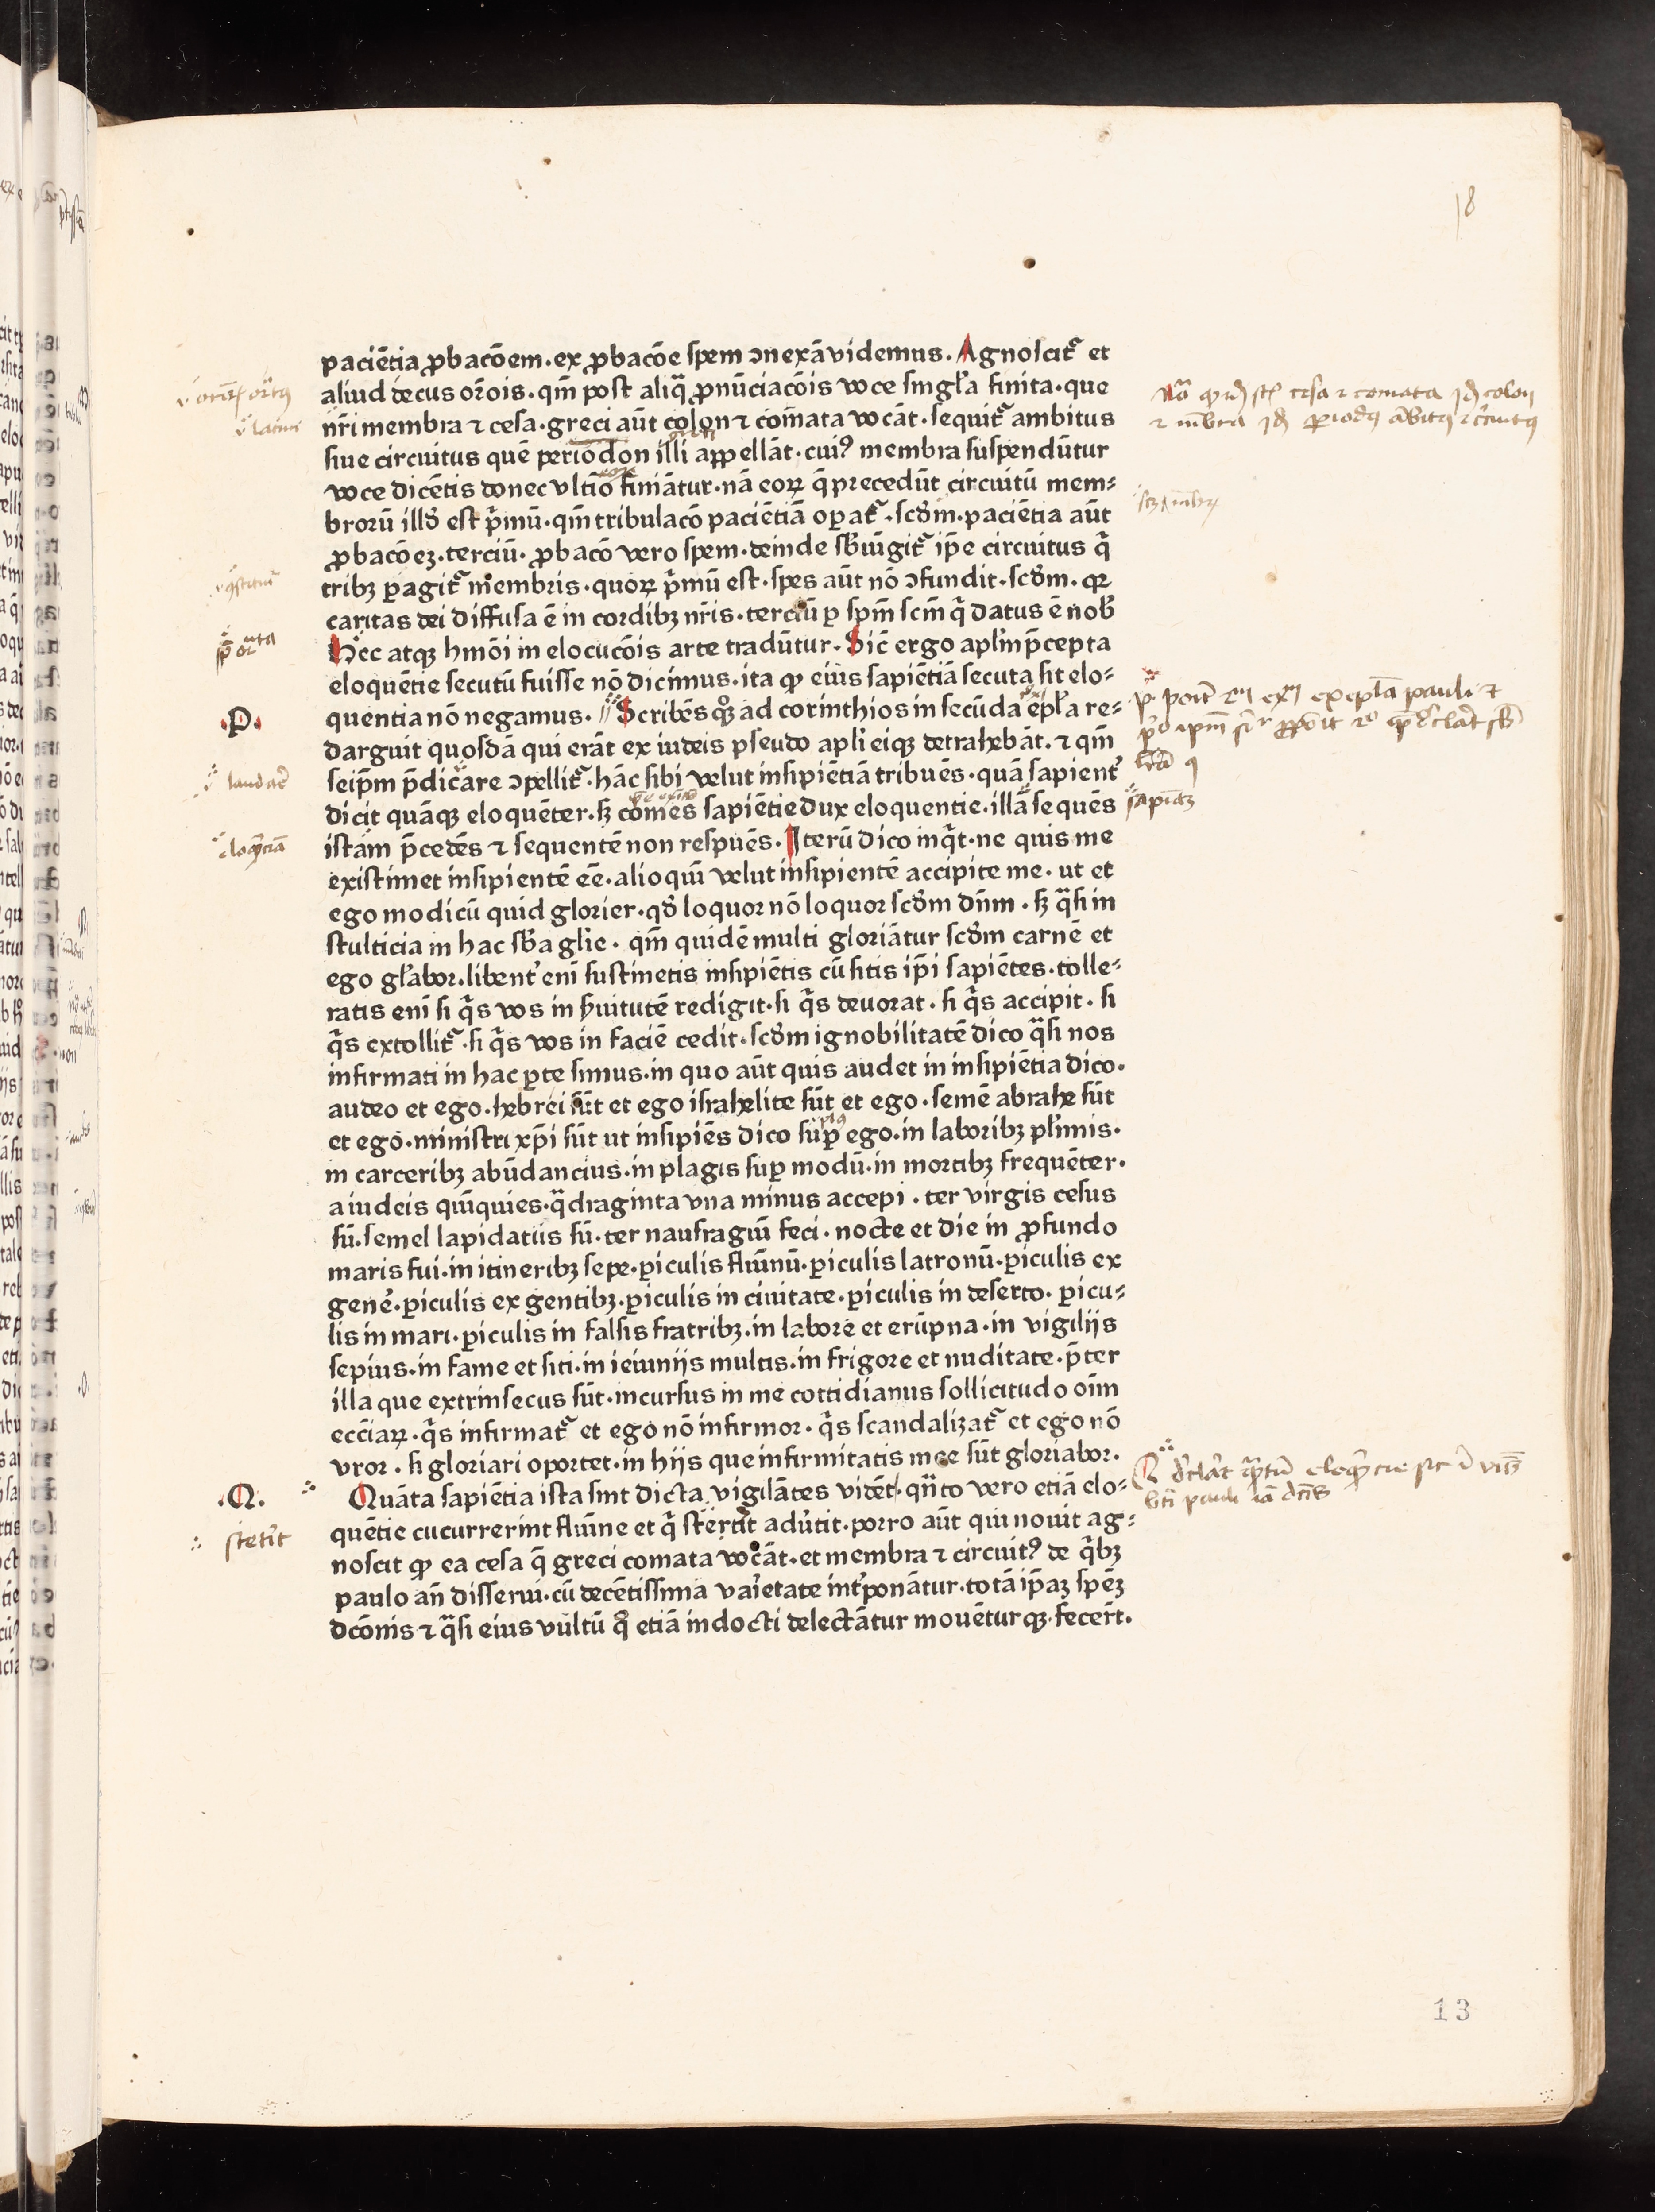 18
paciētia ꝓbacōem. ex ꝓbacōe spem ↄnexā videmus. Agnoscit᷑ et
aliud decus or̄ois. qm̄ post aliq̄ ꝓnūciacōis voce singl̓a finita. que
nr̄i membra ⁊ cesa. greci aūt colon ⁊ com̄ata vocāt. sequit᷑ ambitus
siue circuitus quē periodon illi appellāt. cuiꝰ membra suspendūtur
voce dicētis donec vltīo finiātur. nā eoꝝ q̄ precedūt circuitū mem⸗
brorū illd̓ est p̄mū. qm̄ tribulacō paciētiā oꝑat᷑. scd̓m. paciētia aūt
ꝓbacōeꝫ. terciū. ꝓbacō vero spem. deinde sb̓iūgit᷑ ip̄e circuitus q̄
tribꝫ ꝑagit᷑ membris. quoꝝ p̄mū est. spes aūt nō ↄfundit. scd̓m. qꝛ
caritas dei diffusa ē in cordibꝫ nr̄is. terciū ꝑ spm̄ scm̄ q̄ datus ē nob̓
Hec atqꝫ hmōi in elocucōis arte tradūtur. Sic̄ ergo apl̓m p̄cepta
eloquētie secutū fuisse nō dicimus. ita ꝙ eius sapiētiā secuta sit elo⸗
.P.
quentia nō negamus. Scribēs qͦꝫ ad corinthios in secūda epl̓a re⸗
darguit quosdā qui erāt ex iudeis pseudo apl̓i eiqꝫ detrahebāt. ⁊ qm̄
seip̄m p̄dicare ↄpellit᷑. hāc sibi velut insipiētiā tribuēs. quā sapient̓
dicit quāqꝫ eloquēter. sꝫ comes sapiētie dux eloquentie. illā sequēs
istam p̄cedēs ⁊ sequentē non respuēs. Iterū dico inq̄t. ne quis me
existimet insipientē ēē. alioquī velut insipientē accipite me. ut et
ego modicū quid glorier. qd̓ loquor nō loquor scd̓m dn̄m. sꝫ q̄si in
stulticia in hac sb̓a gl̓ie. qm̄ quidē multi gloriātur scd̓m carnē et
ego gl̓abor. libent̓ enī sustinetis insipiētis cū sitis ip̄i sapiētes. tolle⸗
ratis enī si q̄s vos in ẜuitutē redigit. si q̄s deuorat. si q̄s accipit. si
q̄s extollit᷑. si q̄s vos in faciē cedit. scd̓m ignobilitatē dico q̄si nos
infirmati in hac ꝑte simus. in quo aūt quis audet in insipiētia dico.
audeo et ego. hebrei sūt et ego israhelite sūt et ego. semē abrahe sūt
et ego. ministri xp̄i sūt ut insipiēs dico suꝑ ego. in laboribꝫ pl̓imis.
in carceribꝫ abūdancius. in plagis suꝑ modū. in mortibꝫ frequēter.
a iudeis quīquies. q̄draginta vna minus accepi. ter virgis cesus
sū. semel lapidatus sū. ter naufragiū feci. nocte et die in ꝓfundo
maris fui. in itineribꝫ sepe. ꝑiculis fluīnū. ꝑiculis latronū. ꝑiculis ex
gene̓. ꝑiculis ex gentibꝫ. ꝑiculis in ciuitate. ꝑiculis in deserto. ꝑicu⸗
lis in mari. ꝑiculis in falsis fratribꝫ. in labore et erūpna. in vigilijs
sepius. in fame et siti. in ieiunijs multis. in frigore et nuditate. p̄ter
illa que extrinsecus sūt. incursus in me cottidianus sollicitudo oīm
ecc̄iaꝝ. q̄s infirmat᷑ et ego nō infirmor. q̄s scandalizat᷑ et ego nō
vror. si gloriari oportet. in hijs que infirmitatis mee sūt gloriabor.
.Q.
Quāta sapiētia ista sint dicta vigilātes vidēt. qn̄to vero etiā elo⸗
stetit̓
quētie cucurrerint fluīne et q̄ stertit adu̓tit. porro aūt qui nouit ag⸗
noscit ꝙ ea cesa q̄ greci comata vocāt. et membra ⁊ circuitꝰ de q̄bꝫ
paulo an̄ disserui. cū decētissima va̓ietate int̓ponātur. totā ip̄aꝫ spēꝫ
dcōnis ⁊ q̄si eius vultū qͦ etiā indocti delectātur mouēturqꝫ. fecer̄t.
13